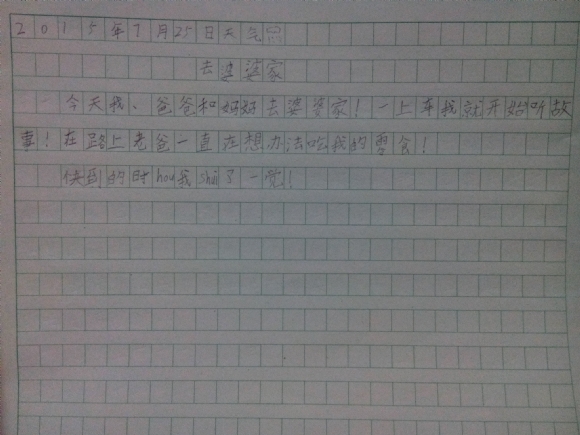 2015年7月25日天气
去婆婆家
今天我、爸爸和妈妈去婆婆家!一上车我就开始听故
事!在路上老爸一直在想办法吃我的零食!
快到的时hou我shui了一觉!